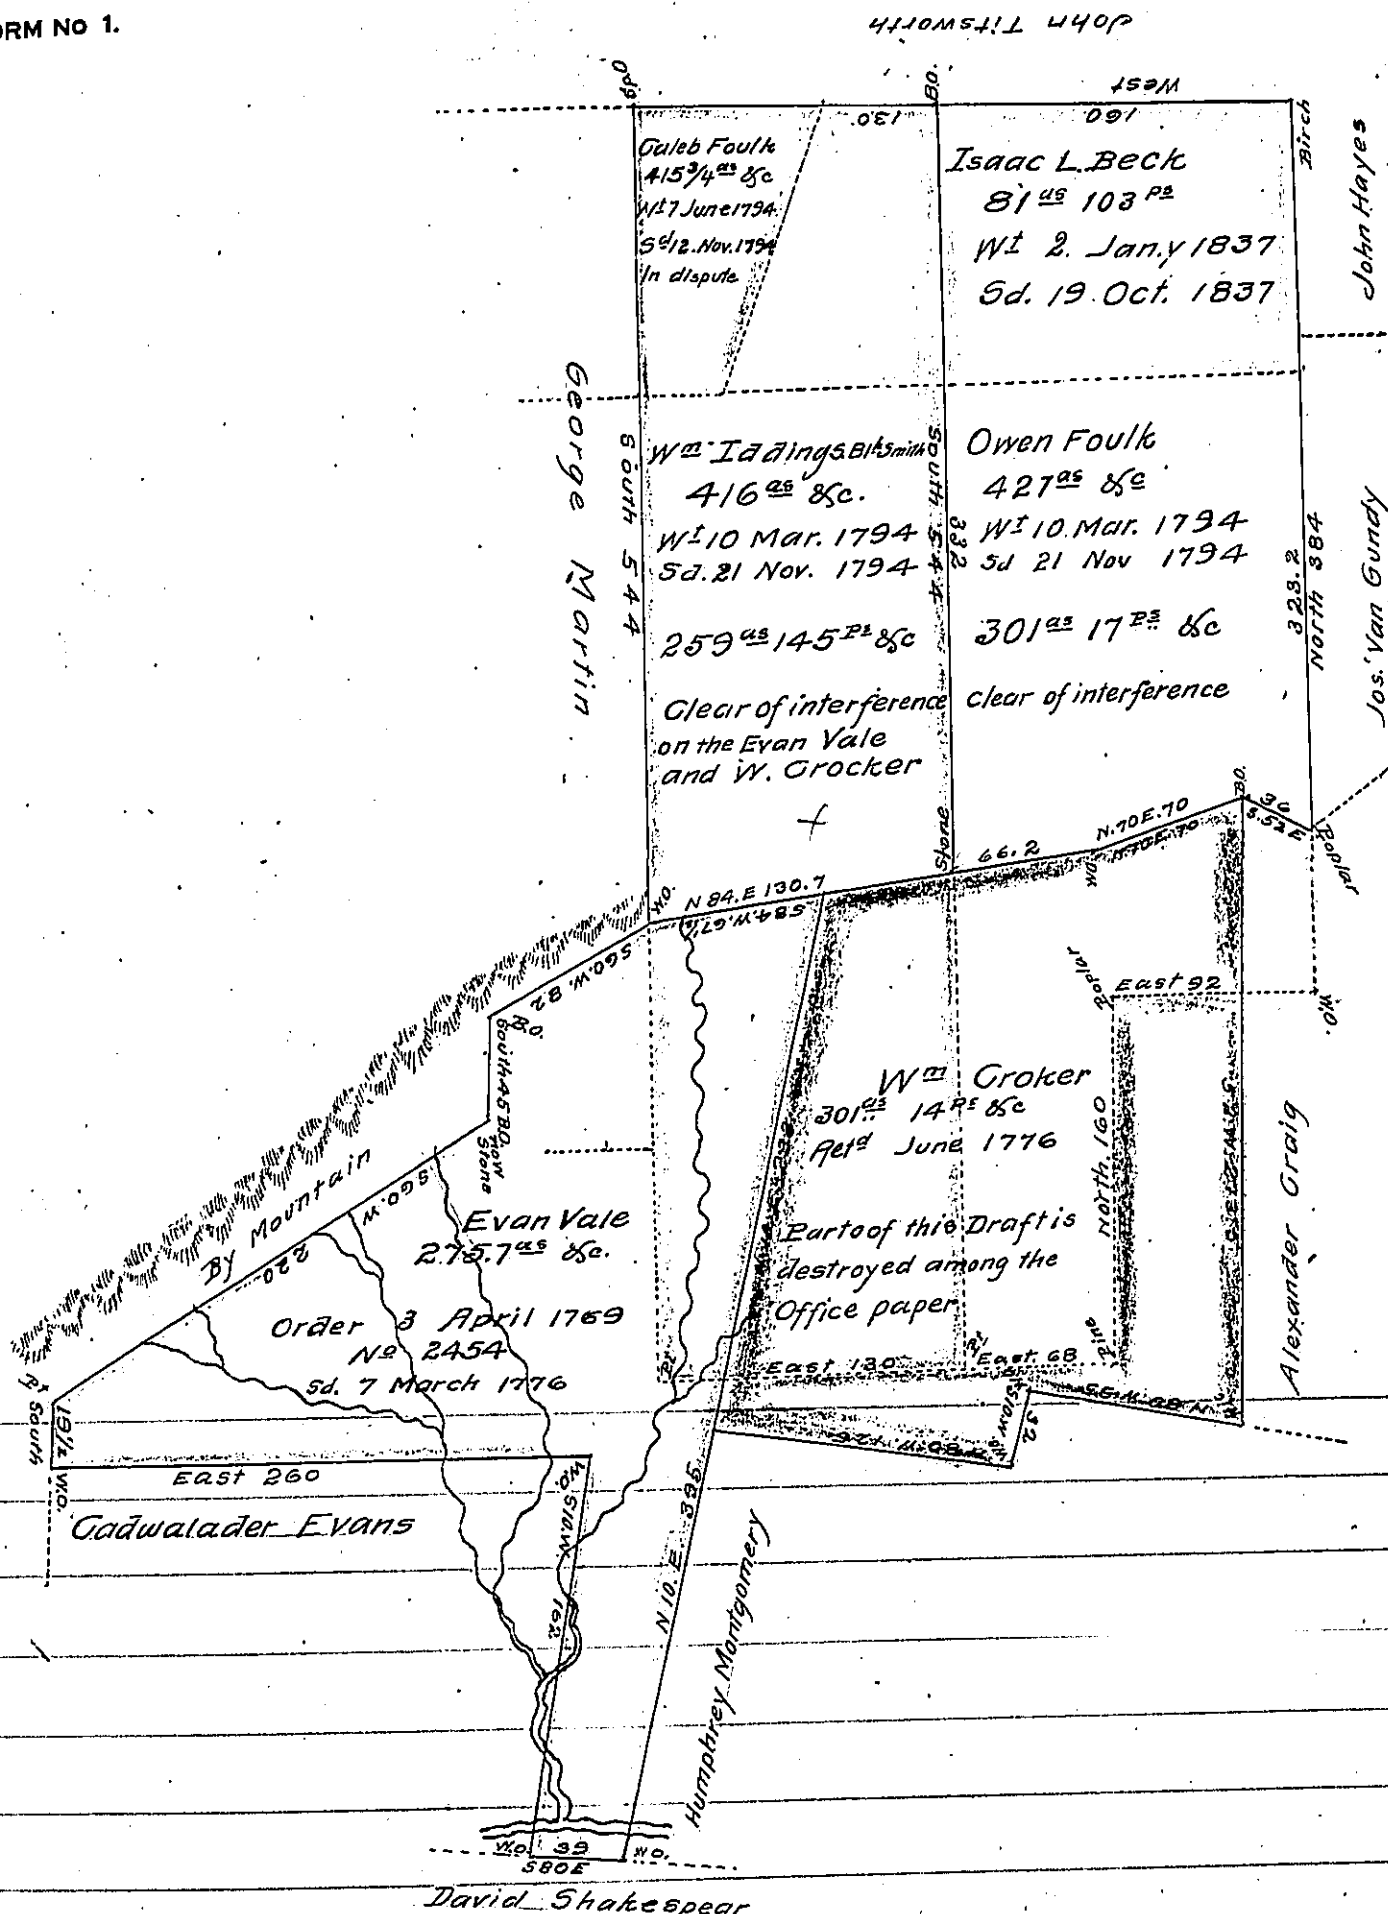 ORM No 1.
John Titsworth
West
160
130
Birch
B.O.
John Hayes
Caleb Foulk
415 3/4 as &c
Wt 7 June 1794
Sd 12. Nov. 1794
In dispute
Isaac L. Beck
81 as 103 Ps
Wt 2. Jan.y 1837
Sd. 19 Oct. 1837
George Martin
South 544
Wm Iddings Blk Smith
416 as &c.
Wt 10 Mar. 1794
Sd. 21 Nov. 1794
259 as 145 Ps &c
Clear of interference
on the Evan Vale
and W. Crocker
South 544
332
Owen Foulk
427 as &c
Wt 10. Mar. 1794
Sd 21 Nov 1794
301 as 17 Ps &c
clear of interference
323.2
North 384
Jos. Van Gundy
Stone
66.2
N.70E.70
N.70E.70
B.O.
36
S.52 E
Poplar
N 84.E 130.7
S84.W.67 1/2
S60.W. 82
B.O.
South 45 B.O.
now
Stone
Poplar
East 92
W.O.
Wm Croker
301 as 14 Ps &c
Retd June 1776
Part of this Draft is
destroyed among the
Office paper
North 160
Pine
Alexander Craig
By Mountain
220
S60.W.
Evan Vale
275.7 as &c.
Order 3 April 1769
No 2454
Sd. 7 March 1776
Pt
East 130
Pt
East 68
S10W
32
Pt
South
19 1/2
W.O.
East 260
W.O.
S10W.
162
Cadwalader Evans
N 10. E. 395
Humphrey Montgomery
W.O. 39 W.O.
S80E
David Shakespear